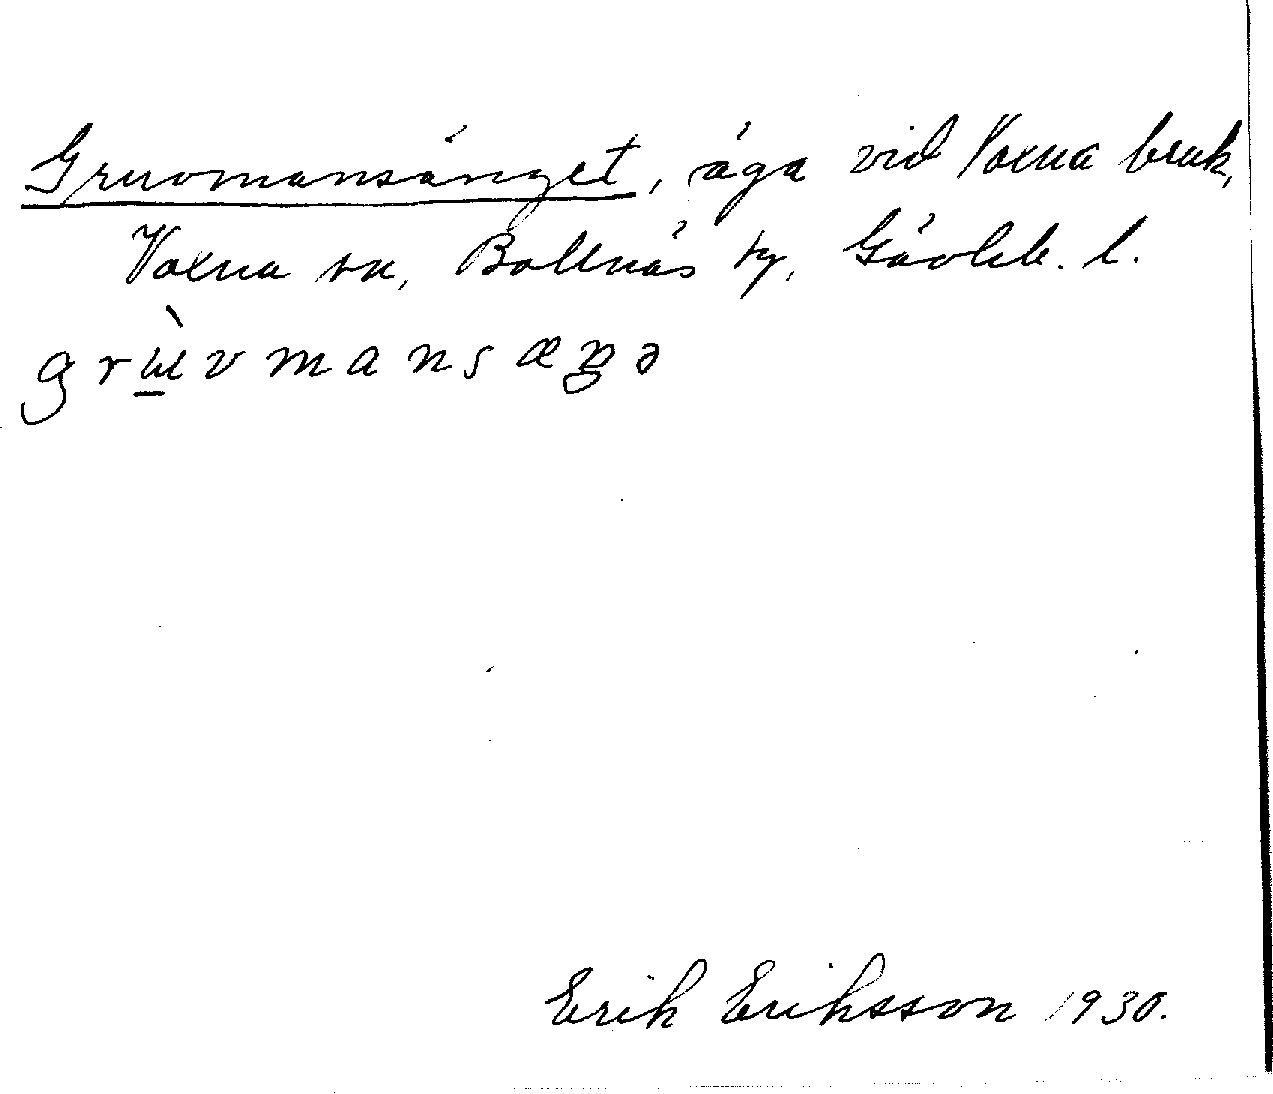 Gruvmansänget, äga vid Voxna bruk,
Voxna sn, Bollnäs tg, Gävleb. l.
grʉ̠̀vmansæŋə
Erik Eriksson 1930.